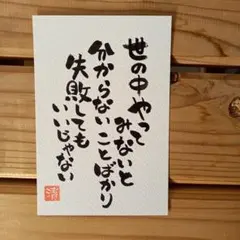 世の中やって
みないと
分からないことばかり
失敗しても
いいじゃない